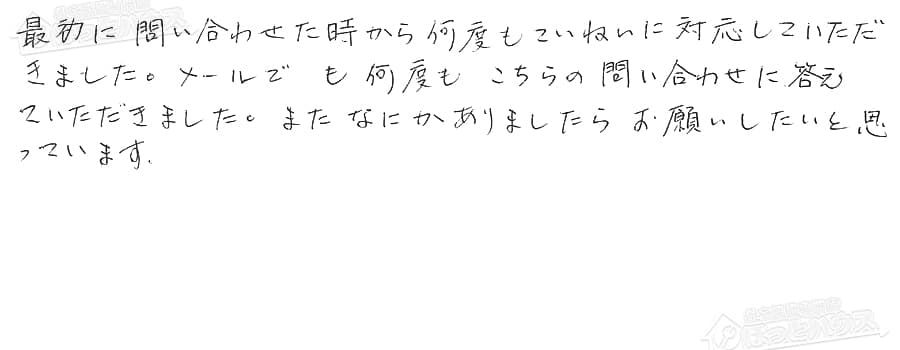 最初に問い合わせた時から何度もていねいに対応していただ
きました。メールでも何度もこちらの問い合わせに答え
ていただきました。またなにかありましたらお願いしたいと思
っています.